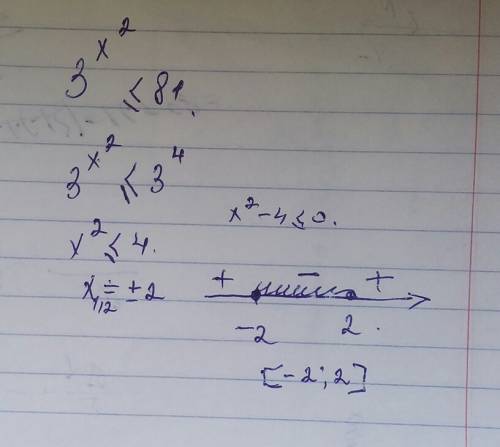 3^{x^2} ≤ 81.
3^{x^2} ≤ 3^4
x^2 ≤ 4.
x_{1,2} = ± 2
x^2 - 4 ≤ 0.
+ − +
-2 2.
[-2; 2]